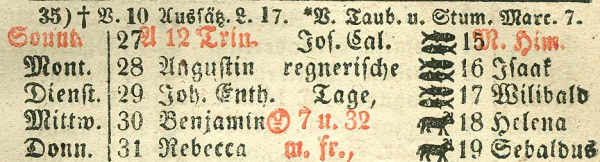 35) † V. 10 Aussätz. L. 17. *V. Taub. u. Stum. Marc. 7.
Sonnt. 27 A 12 Trin. Jos. Cal. 15 M. Him.
Mont. 28 Augustin regnerische 16 Isaak
Dienst. 29 Joh. Enth. Tage, 17 Wilibald
Mittw. 30 Benjamin 7 u. 32 18 Helena
Donn. 31 Rebecca m. fr., 19 Sebaldus